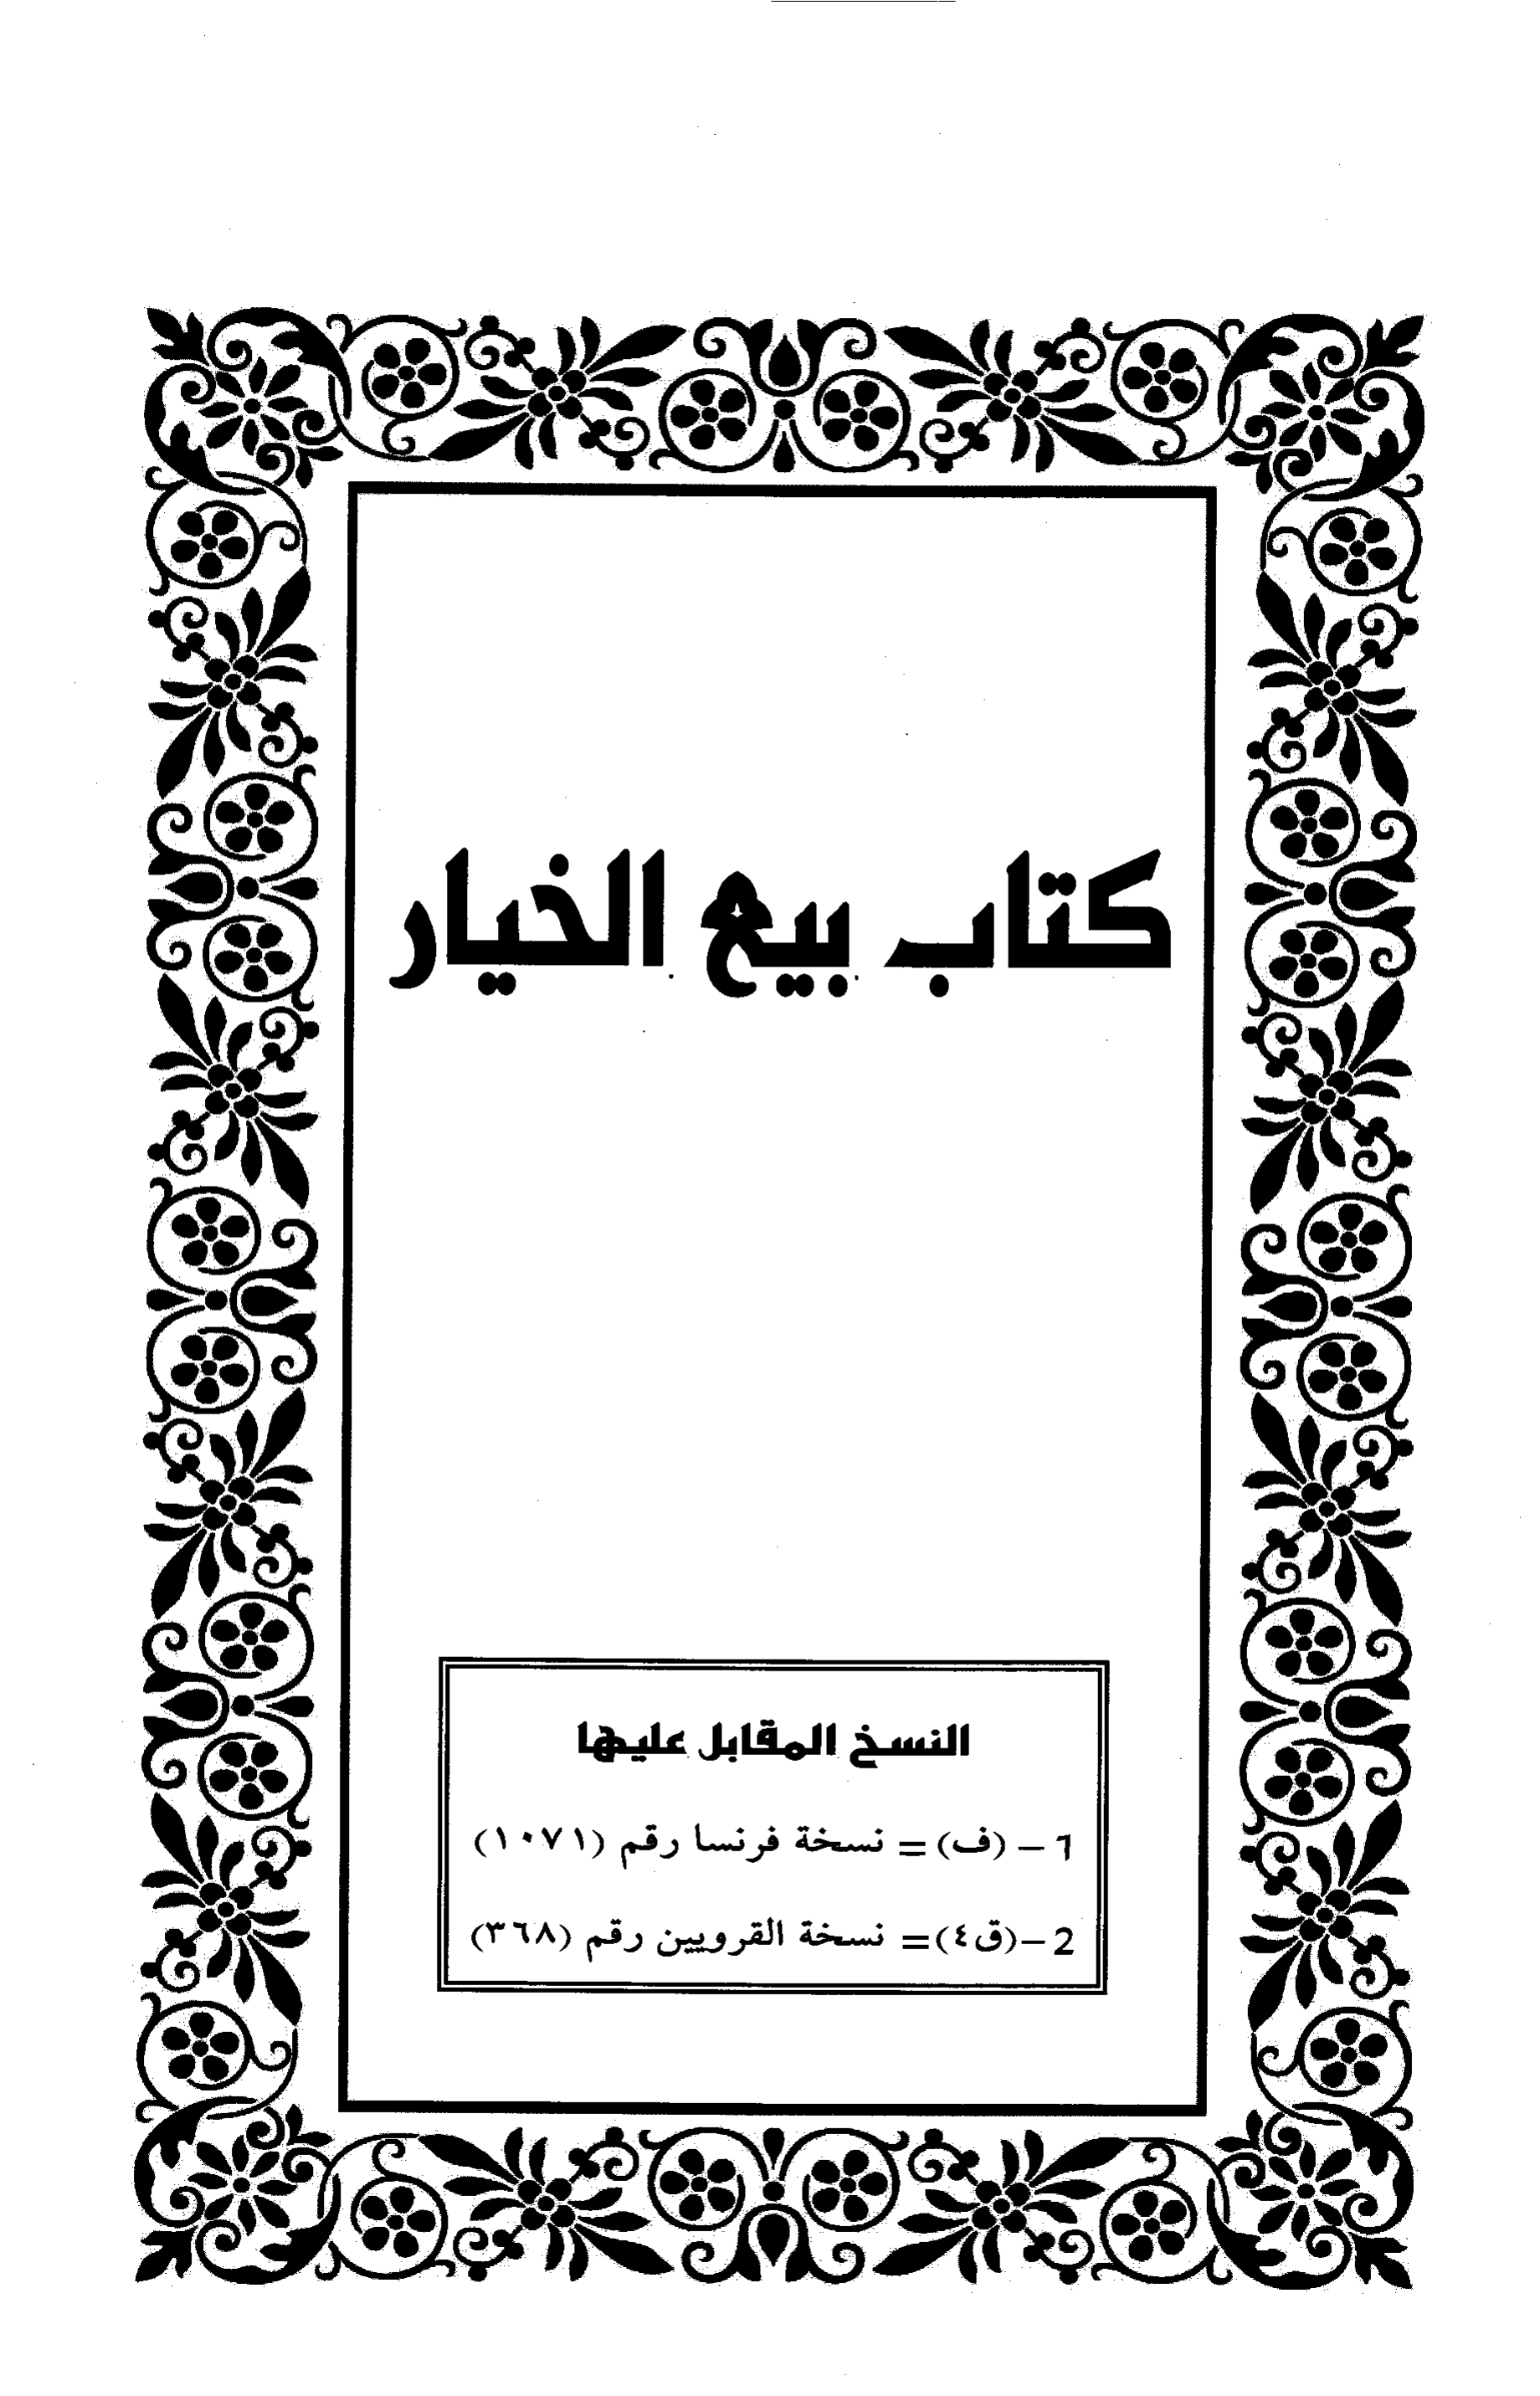 كتاب بيع الخيار
النسخ المقابل عليها
٦ – (ف) = نسخة فرنسا رقم (١٠٧١)
2 –(ق٤)= نسخة القرويين رقم (٣٦٨)